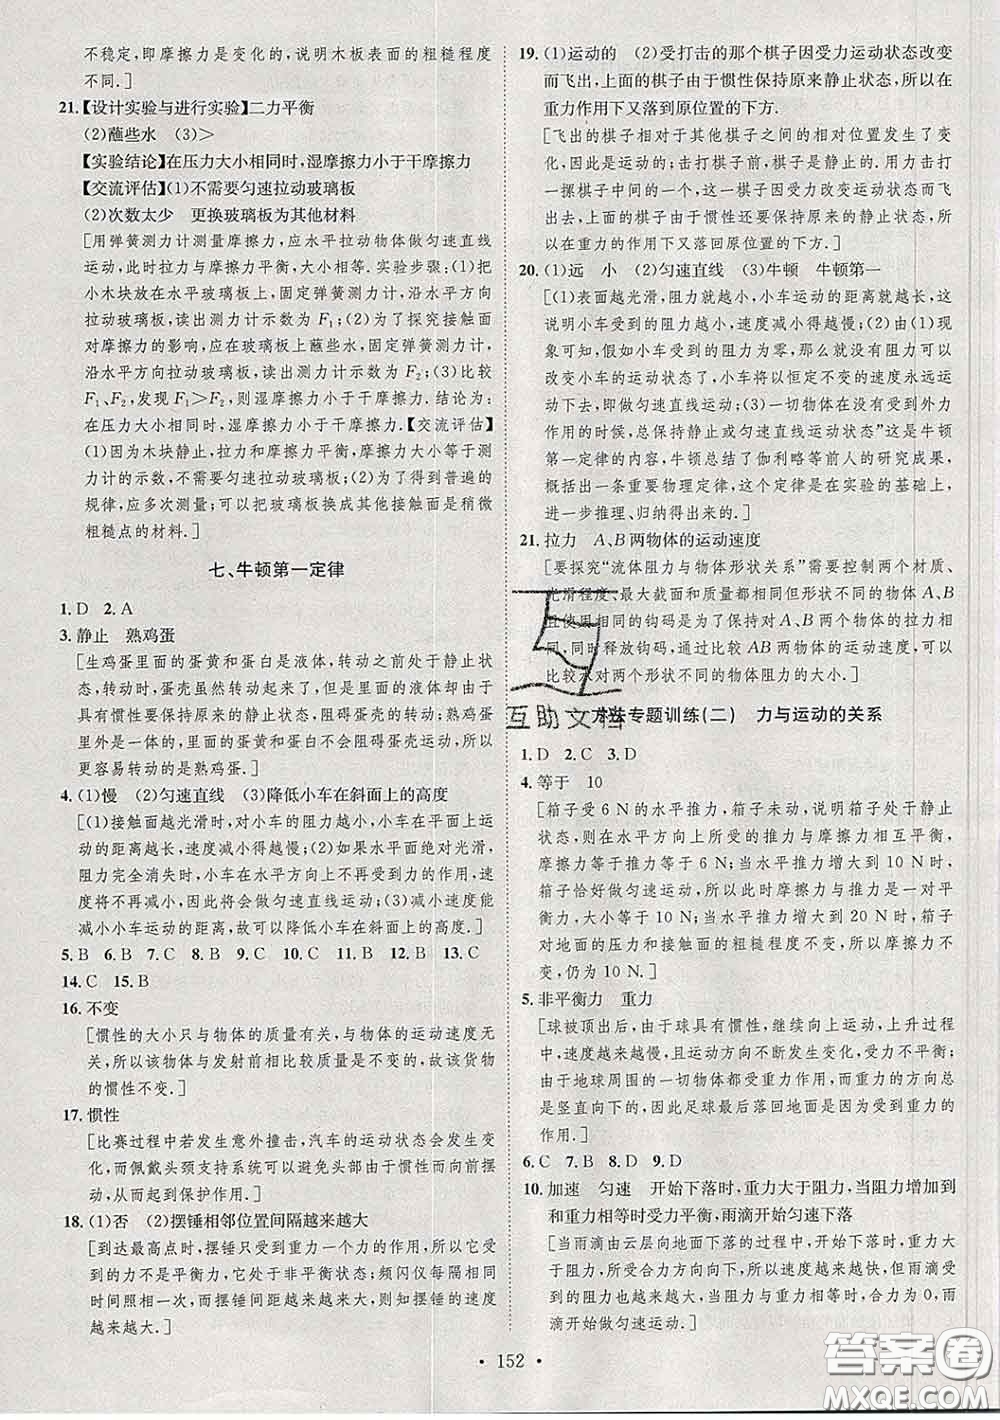 不稳定,即摩擦力是变化的,说明木板表面的粗糙程度
不同.]
21.【设计实验与进行实验】二力平衡
(2)蘸些水 (3)>
【实验结论】在压力大小相同时,湿摩擦力小于干摩擦力
【交流评估】(1)不需要匀速拉动玻璃板
(2)次数太少 更换玻璃板为其他材料
[用弹簧测力计测量摩擦力,应水平拉动物体做匀速直线
运动,此时拉力与摩擦力平衡,大小相等.实验步骤:(1)把
小木块放在水平玻璃板上,固定弹簧测力计,沿水平方向
拉动玻璃板,读出测力计示数为F₁;(2)为了探究接触面
对摩擦力的影响,应在玻璃板上蘸些水,固定弹簧测力计,
沿水平方向拉动玻璃板,读出测力计示数为F₂;(3)比较
F₁、F₂,发现F₁>F₂,则湿摩擦力小于干摩擦力.结论为:
在压力大小相同时,湿摩擦力小于干摩擦力.【交流评估】
(1)因为木块静止,拉力和摩擦力平衡,摩擦力大小等于测
力计的示数,不需要匀速拉动玻璃板;(2)为了得到普遍的
规律,应多次测量;(3)可以把玻璃板换成其他材质是稍微
粗糙点的材料.]
七、牛顿第一定律
1.D 2.A
3.静止 熟鸡蛋
[生鸡蛋里面的蛋黄和蛋白是液体,转动之前处于静止状
态,转动时,蛋壳虽然转动起来了,但是里面的液体却由于
惯性要保持原来的静止状态,阻碍蛋壳的转动;熟鸡蛋由
于里面是固体,里面的蛋黄和蛋白不会阻碍蛋壳转动,所以
更容易转动的是熟鸡蛋.]
4.(1)慢 (2)匀速直线 (3)降低小车在斜面上的高度
[(1)接触面越光滑时,对小车的阻力越小,小车在水平面上运
动的距离越长,速度减小得越慢;(2)如果水平面绝对光滑,
阻力完全消失时,小车在水平方向上不再受到力的作用,速度
不再减小,因此将会做匀速直线运动;(3)减小速度能
减小小车运动的距离,故可以降低小车在斜面上的高度.]
5.B 6.B 7.B 8.C 9.C 10.C 11.B 12.B 13.C
14.C 15.B
16.不变
[惯性的大小只与物体的质量有关,与物体的运动速度无
关,所以该物体与发射前相比较质量是不变的,故该货物
的惯性不变.]
17.惯性
[比赛过程中若发生意外撞击,汽车的运动状态会发生变
化,而佩戴头颈支持系统可以避免头部由于惯性而向前摆
动,从而起到保护作用.]
18.(1)否 (2)摆锤相邻位置间隔越来越大
[到达最高点时,摆锤只受到重力一个力的作用,所以它受到
的力不是平衡力,它处于非平衡状态;频闪仪每隔相同时间
照相一次,而摆锤间距离越来越大,则知摆锤的速度
越来越大.]
19.(1)运动的 (2)受打击的那个棋子因受力运动状态改变
而飞出,上面的棋子由于惯性保持原来静止状态,所以在
重力作用下又落到原位置的下方.
[飞出的棋子相对于其他棋子之间的相对位置发生了变
化,因此是运动的;击打棋子前,棋子是静止的.用力击打
一摞棋子中间的一个,这一棋子因受力改变运动状态而飞
出去,上面的棋子由于惯性还要保持原来的静止状态,所
以在重力的作用下又落回原位置的下方.]
20.(1)远 小 (2)匀速直线 (3)牛顿 牛顿第一
[(1)表面越光滑,阻力就越小,小车运动的距离就越长,这
说明小车受到的阻力越小,速度减小得越慢;(2)由(1)现
象可知,假如小车受到的阻力为零,那么就没有阻力可以
改变小车的运动状态了,小车将以恒定不变的速度永远运
动下去,即做匀速直线运动;(3)一切物体在没有受到外力
作用的时候,总保持静止或匀速直线运动状态”这是牛顿
第一定律的内容,牛顿总结了伽利略等前人的研究成果,
概括出一条重要物理定律,这个定律是在实验的基础上,
进一步推理、归纳得出来的.]
21.拉力 A、B两物体的运动速度
[要探究“流体阻力与物体形状关系”需要控制两个材质、
光滑程度、最大截面和质量都相同但形状不同的物体A、B
且使用相同的钩码是为了保持对A、B两物体的拉力相
同,同时释放钩码,通过比较AB两物体的运动速度,可
以比较水对两个形状不同的物体阻力的大小.]
方法专题训练(二) 力与运动的关系
1.D 2.C 3.D
4.等于 10
[箱子受6 N的水平推力,箱子未动,说明箱子处于静止
状态,则在水平方向上所受的推力与摩擦力相互平衡,
摩擦力等于推力等于6 N;当水平推力增大到10 N时,
箱子恰好做匀速运动,所以此时摩擦力与推力是一对平
衡力,大小相等,即为10 N;当水平推力增大到20 N时,箱子
对地面的压力和接触面的粗糙程度不变,所以摩擦力不
变,仍为10 N.]
5.非平衡力 重力
[球被顶出后,由于球具有惯性,继续向上运动,上升过程
中,速度越来越慢,且运动方向不断发生变化,受力不平衡;
由于地球周围的一切物体都受重力作用,而重力的方向总是
竖直向下的,因此足球最后落回地面是因为受到重力
的作用.]
6.C 7.D 8.D 9.D
10.加速 匀速 开始下落时,重力大于阻力,当阻力增大到
和重力相等时受力平衡,雨滴开始匀速下落
[当雨滴由云层向地面下落的过程中,开始时重力大
于阻力,所受合力向下,所以速度越来越快,但雨滴受
到的阻力也越来越大,直到与重力相等时,合力为0,雨
滴开始做匀速运动.]
互助文档
152
答案圈
MXQE.COM